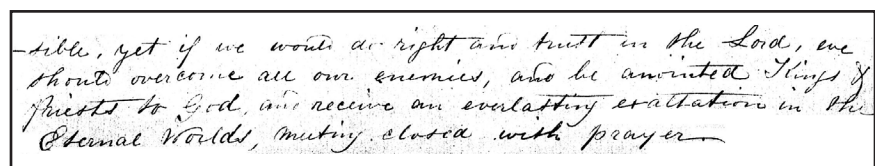 -sible, yet if we would do right and trust in the Lord, we
should overcome all our enemies, and be anointed Kings &
Priests to God, and receive an everlasting exaltation in the
Eternal Worlds, meting closed with prayer